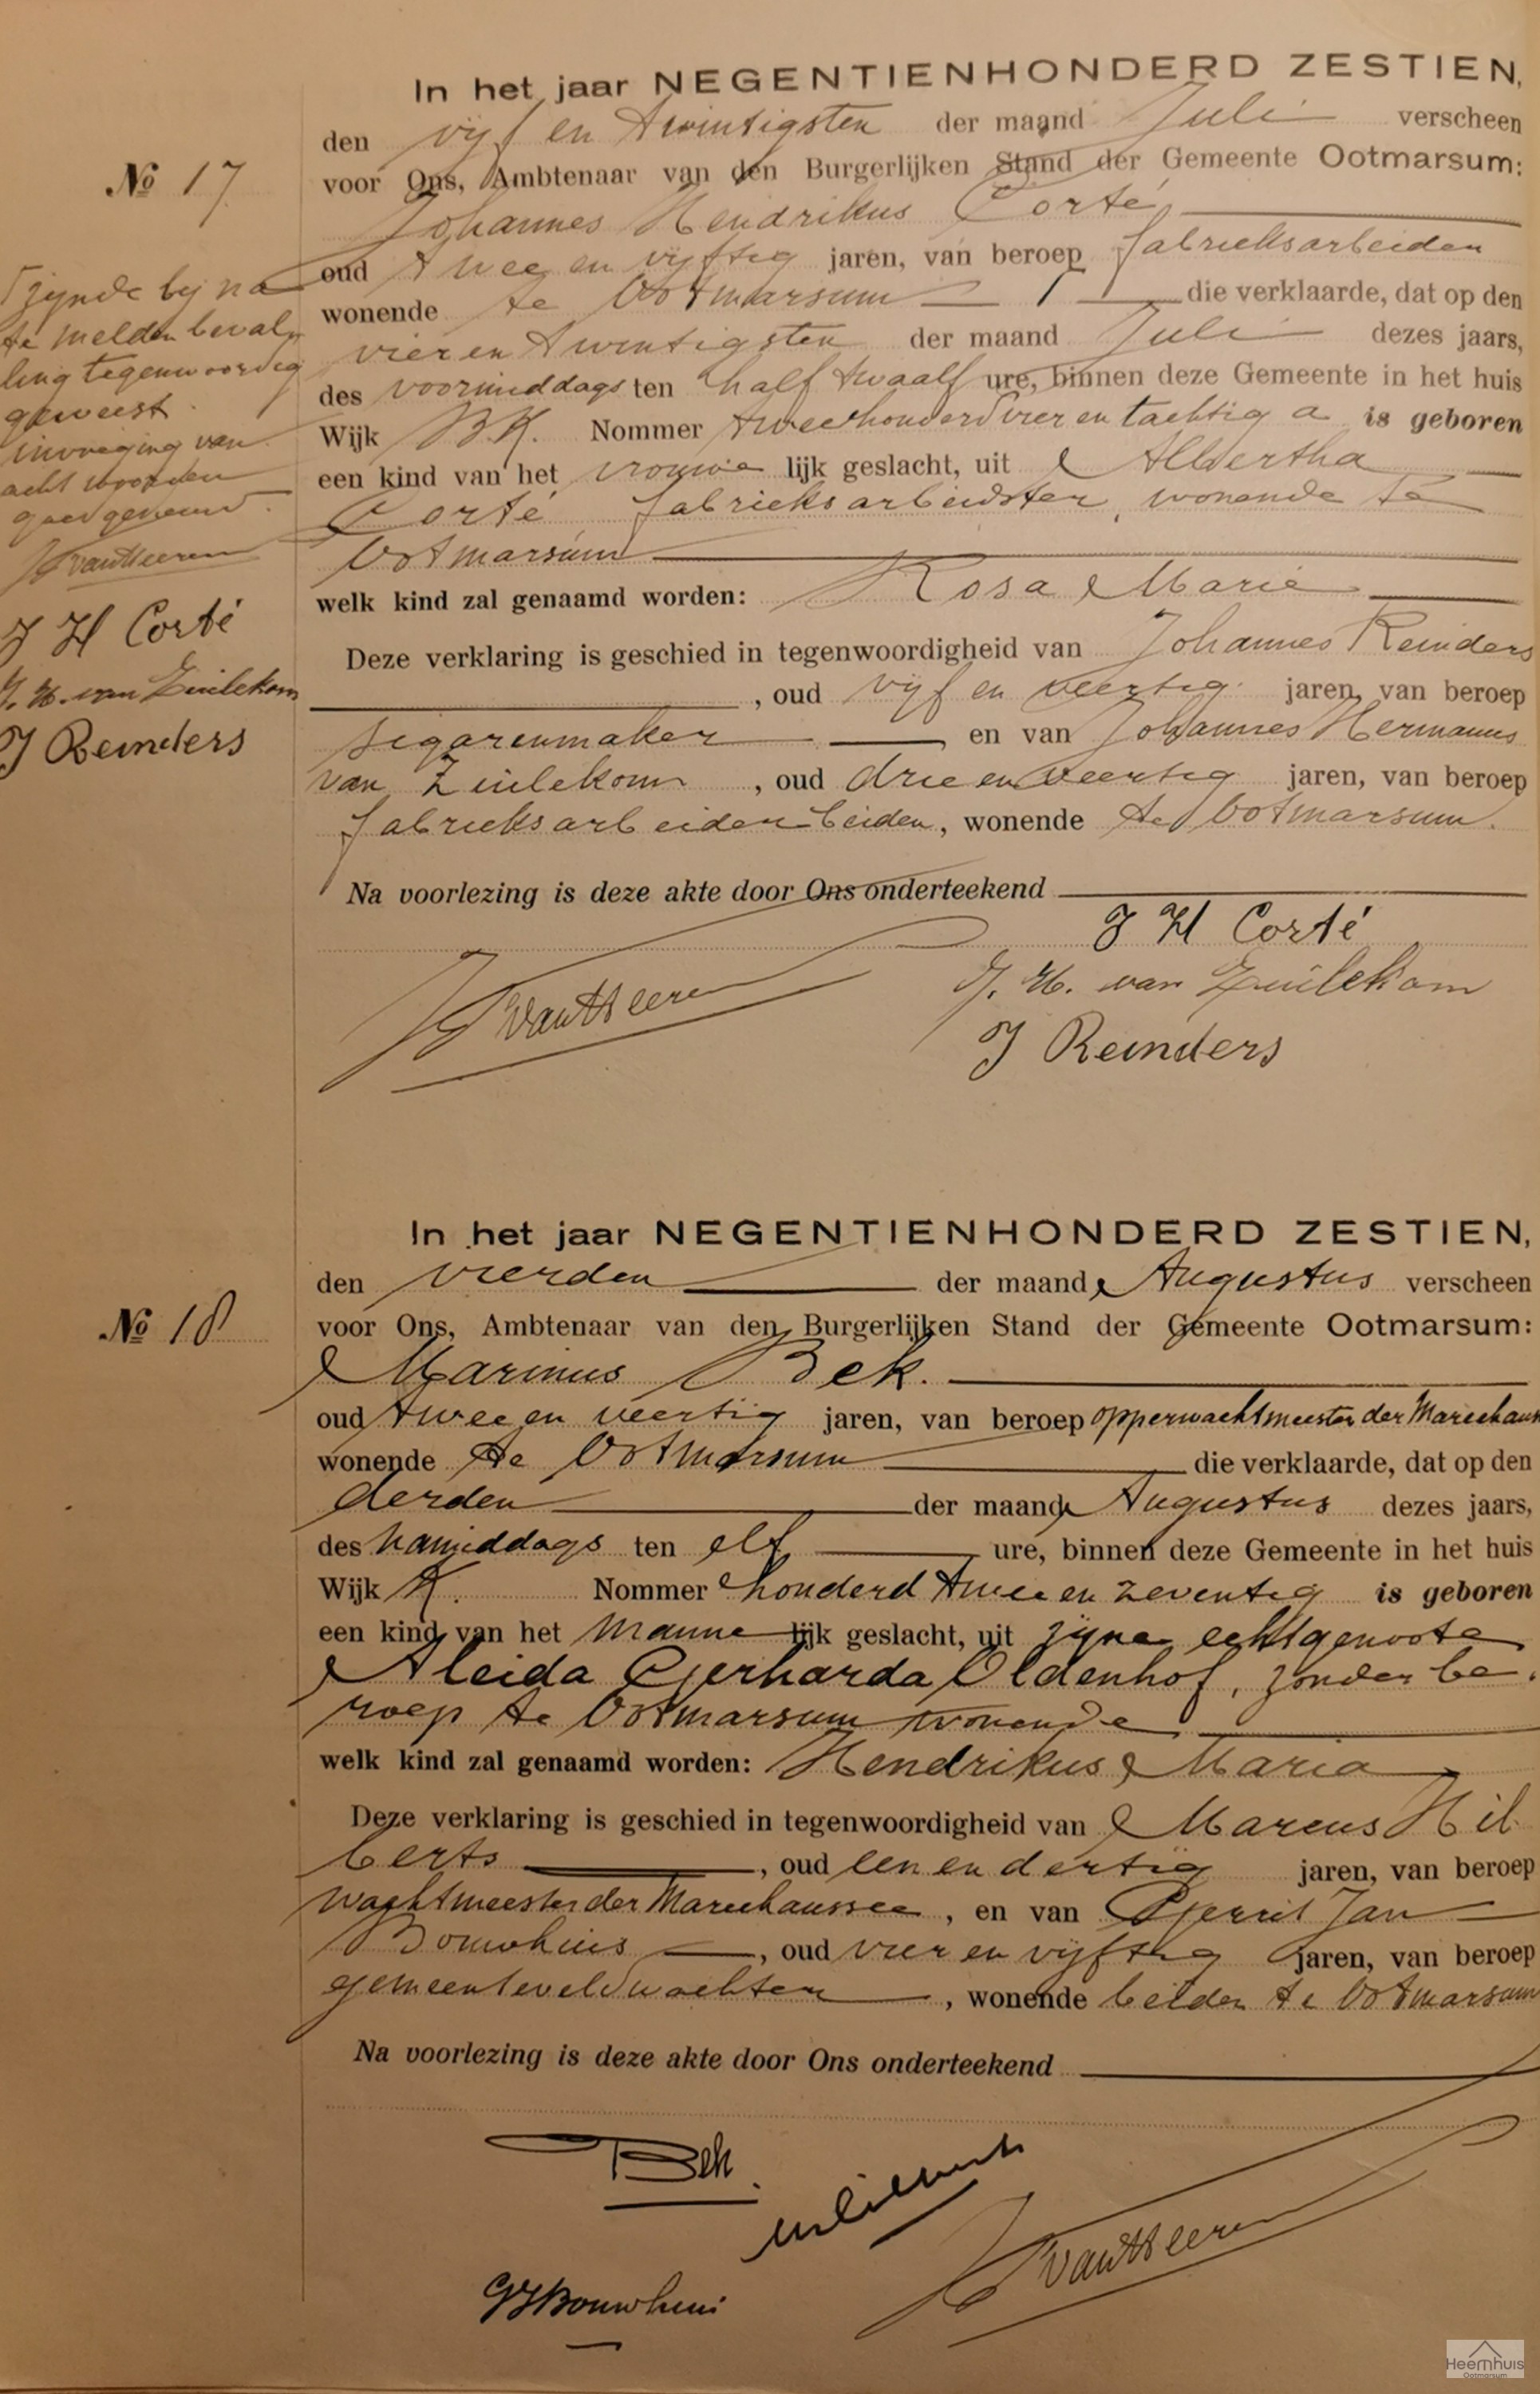 In het jaar NEGENTIENHONDERD ZESTIEN,
den vijf en twintigsten der maand Juli verscheen
No 17
voor Ons, Ambtenaar van den Burgerlijken Stand der Gemeente Ootmarsum:
Johannes Hendrikus Corté
oud twee en vijftig jaren, van beroep fabrieksarbeider
wonende te Ootmarsum die verklaarde, dat op den
vier en twintigsten der maand Juli dezes jaars,
des voormiddags ten half twaalf ure, binnen deze Gemeente in het huis
Wijk B.K. Nommer tweehonderd vier en tachtig a is geboren
een kind van het vrouwe lijk geslacht, uit Albertha
Corté fabrieksarbeidster, wonende te
Ootmarsum
welk kind zal genaamd worden: Rosa Marie
Deze verklaring is geschied in tegenwoordigheid van Johannes Reinders
, oud vijf en veertig jaren, van beroep
sigarenmaker en van Johannes Hermanus
van Zuilekom, oud drie en veertig jaren, van beroep
fabrieksarbeider beiden, wonende te Ootmarsum.
Na voorlezing is deze akte door Ons onderteekend
zijnde bij na
te melden beval
ling tegenwoordig
geweest
invoeging van
acht woorden
goedgekeurd.
van Heeren
J H Corté
J. H. van Zuilekom
J Reinders
J H Corté
J. H. van Zuilekom
van Heeren
J Reinders
In het jaar NEGENTIENHONDERD ZESTIEN,
den vierden der maand Augustus verscheen
No 18
voor Ons, Ambtenaar van den Burgerlijken Stand der Gemeente Ootmarsum:
Marinus Bek.
oud twee en veertig jaren, van beroep opperwachtmeester der Marechaus
wonende te Ootmarsum die verklaarde, dat op den
derden der maand Augustus dezes jaars,
des namiddags ten elf ure, binnen deze Gemeente in het huis
Wijk K. Nommer honderd twee en zeventig is geboren
een kind van het manne lijk geslacht, uit zijne echtgenoote
Aleida Gerharda Oldenhof, zonder be
roep te Ootmarsum wonende
welk kind zal genaamd worden: Hendrikus Maria
Deze verklaring is geschied in tegenwoordigheid van Marcus Hil
berts, oud een en dertig jaren, van beroep
wachtmeester der Marechaussee, en van Gerrit Jan
Bouwhuis, oud vier en vijftig jaren, van beroep
gemeenteveldwachter, wonende beiden te Ootmarsum
Na voorlezing is deze akte door Ons onderteekend
Bek.
van Heeren
GJ Bouwhuis
Heemhuis
Ootmarsum